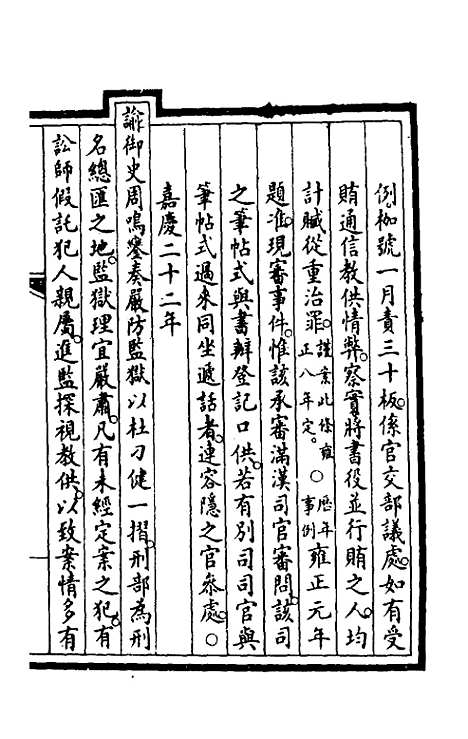 例枷號一月責三十板係官交部議處如有受
賄通信教供情弊察實將書役並行賄之人均
計贓從重治罪謹案此條雍正八年定。○歷年事例雍正元年
題准現審事件惟該承審滿漢司官審問該司
之筆帖式與書辦登記口供若有別司司官與
筆帖式過來同坐遞話者連容隱之官參處○
嘉慶二十二年
諭御史周鳴鑾奏嚴防監獄以杜刁健一摺刑部為刑
名總匯之地監獄理宜嚴肅凡有未經定案之犯有
訟師假託犯人親屬進監探視教供以致案情多有